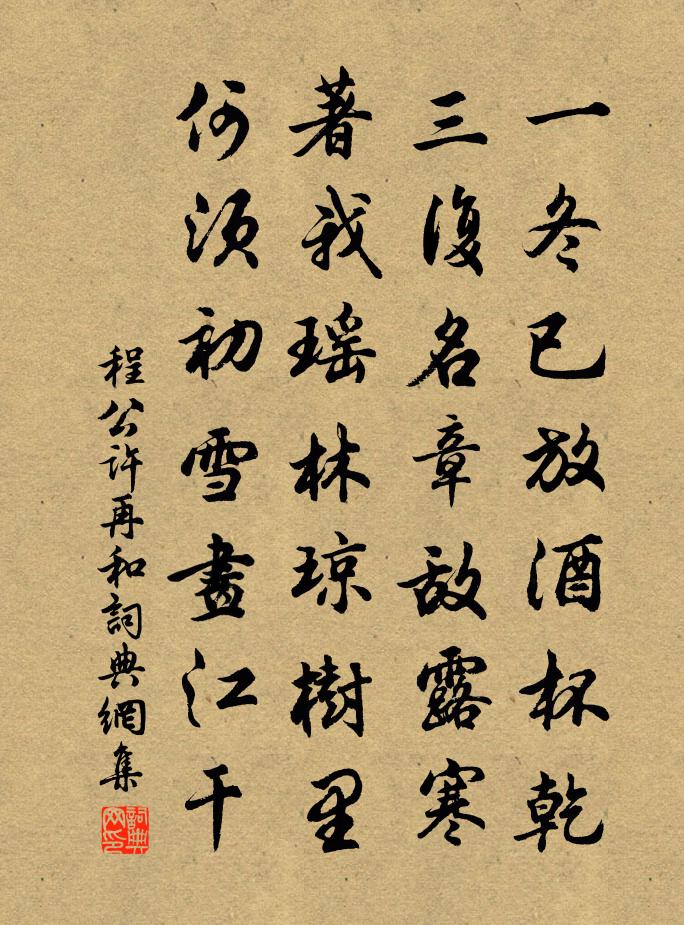 一冬已放酒杯乾
三復名章敵露寒
著我瑶林琼樹里
何須初雪畫江干
程公许再和詞典網集
詞典網印